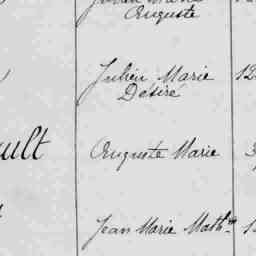 Auguste
Julien Marie 12
Désiré
ault Auguste Marie 3
Jean Marie Math<sup>in</sup> 1